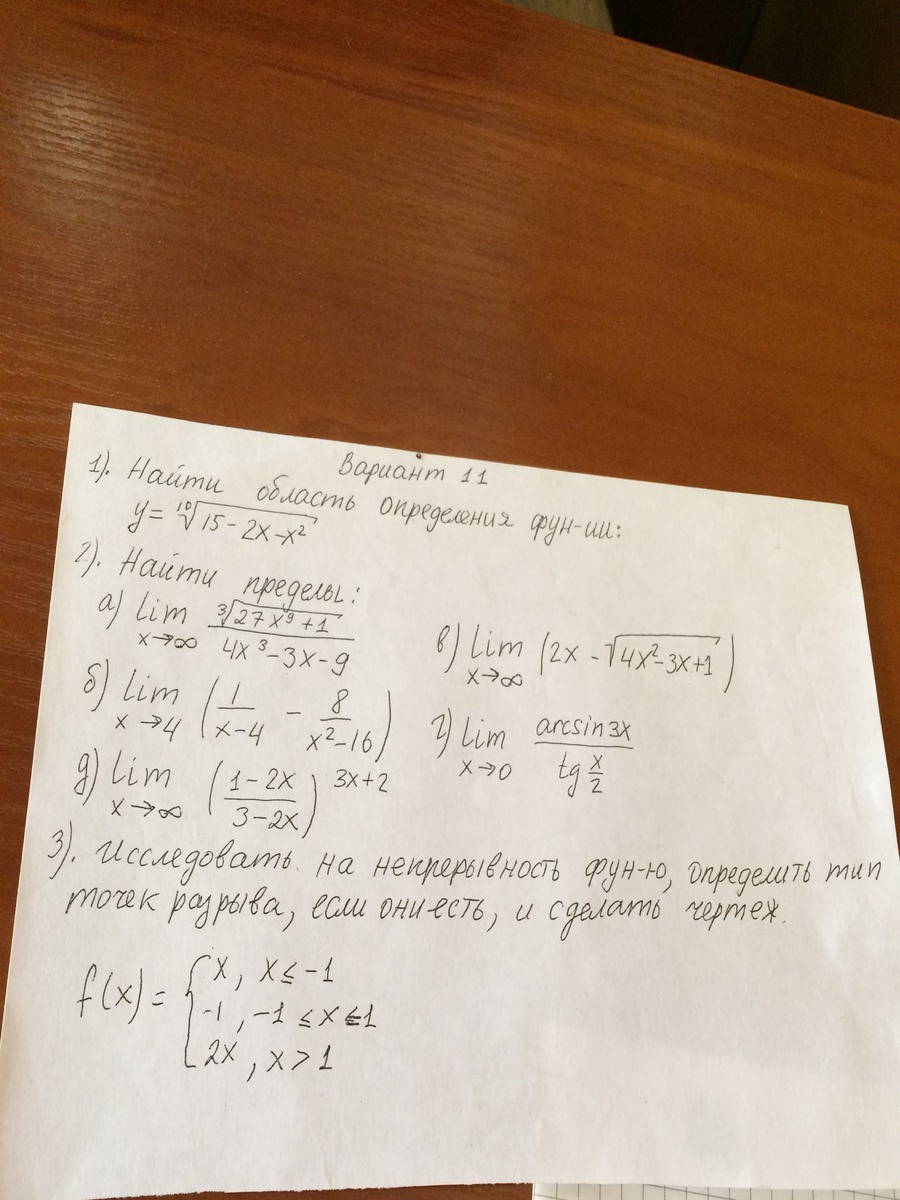 Вариант 11
1). Найти область определения фун-ии:
y = ¹⁰√(15 - 2x - x²)
2). Найти пределы:
а) lim x→∞ ∛(27x⁹ + 1) / (4x³ - 3x - 9)
в) lim x→∞ (2x - √(4x² - 3x + 1))
б) lim x→4 (1/(x-4) - 8/(x²-16))
г) lim x→0 arcsin 3x / tg x/2
д) lim x→∞ ((1 - 2x)/(3 - 2x))^(3x+2)
3). Исследовать на непрерывность фун-ю, определить тип
точек разрыва, если они есть, и сделать чертеж.
f(x) = { x, x ≤ -1
-1, -1 ≤ x ≤ 1
2x, x > 1